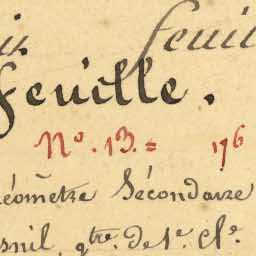 feuil
feuille.
N°. 13. = 176
éomètre Sécondaire
snil, gtre. de 1e. Cle.